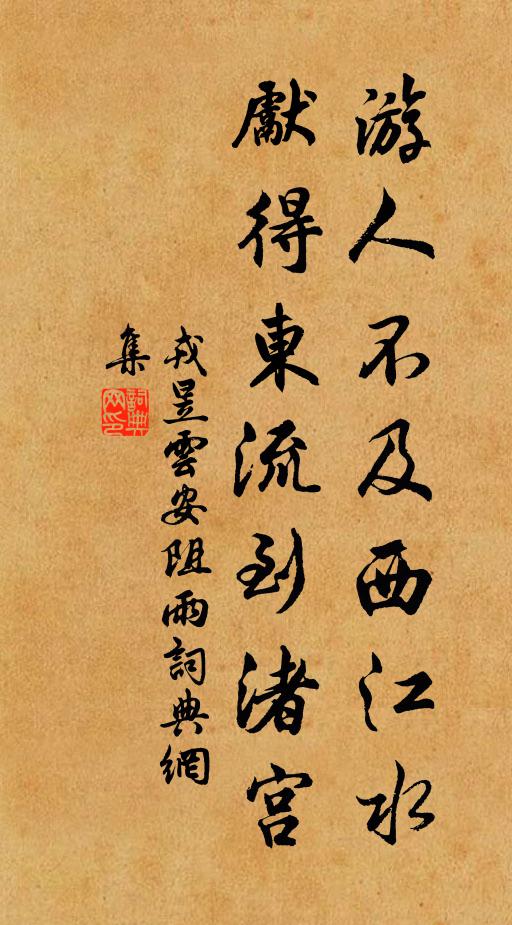 游人不及西江水
獻得東流到渚宮
戎昱雲安阻雨詞典網
集
詞典
网印